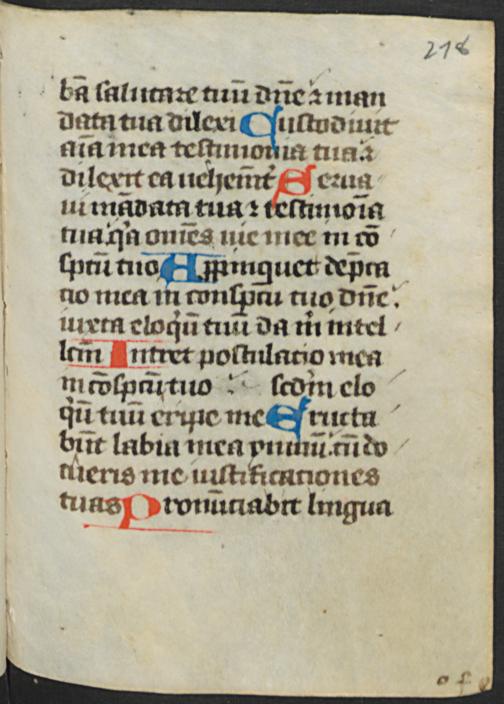 218
bā salutare tuū dn̄e ⁊ man
data tua dilexi Custodiuit
aīa mea testimonia tua ⁊
dilexit ea uehem̄t Serua
ui mādata tua ⁊ testimoīa
tua q̄a om̄es uie mee in cō
sp̄tu tuo Ap̄p̄inquet dep̄ca
tio mea in consp̄tu tuo dn̄e
iuxta eloq̄ū tuū da m̄ intel
lc̄m Intret postulatio mea
in cōsp̄tu tuo scd̄m elo
q̄ū tuū eripe me Eructa
būt labia mea ymnū cū do
cueris me iustificationes
tuas Pronūciabit lingua